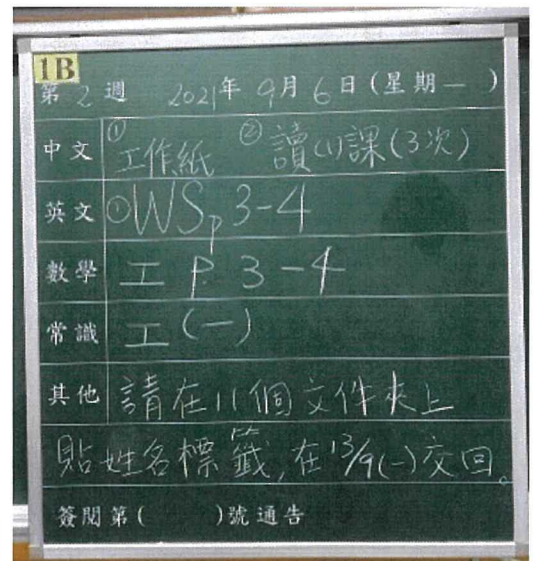 1B
第2週 2021年9月6日(星期一)
中文 ①工作紙 ②讀(1)課(3次)
英文 ①WS p3-4
數學 工 P.3-4
常識 工(一)
其他 請在11個文件夾上
貼姓名標籤,在13/9(一)交回。
簽閱第( )號通告